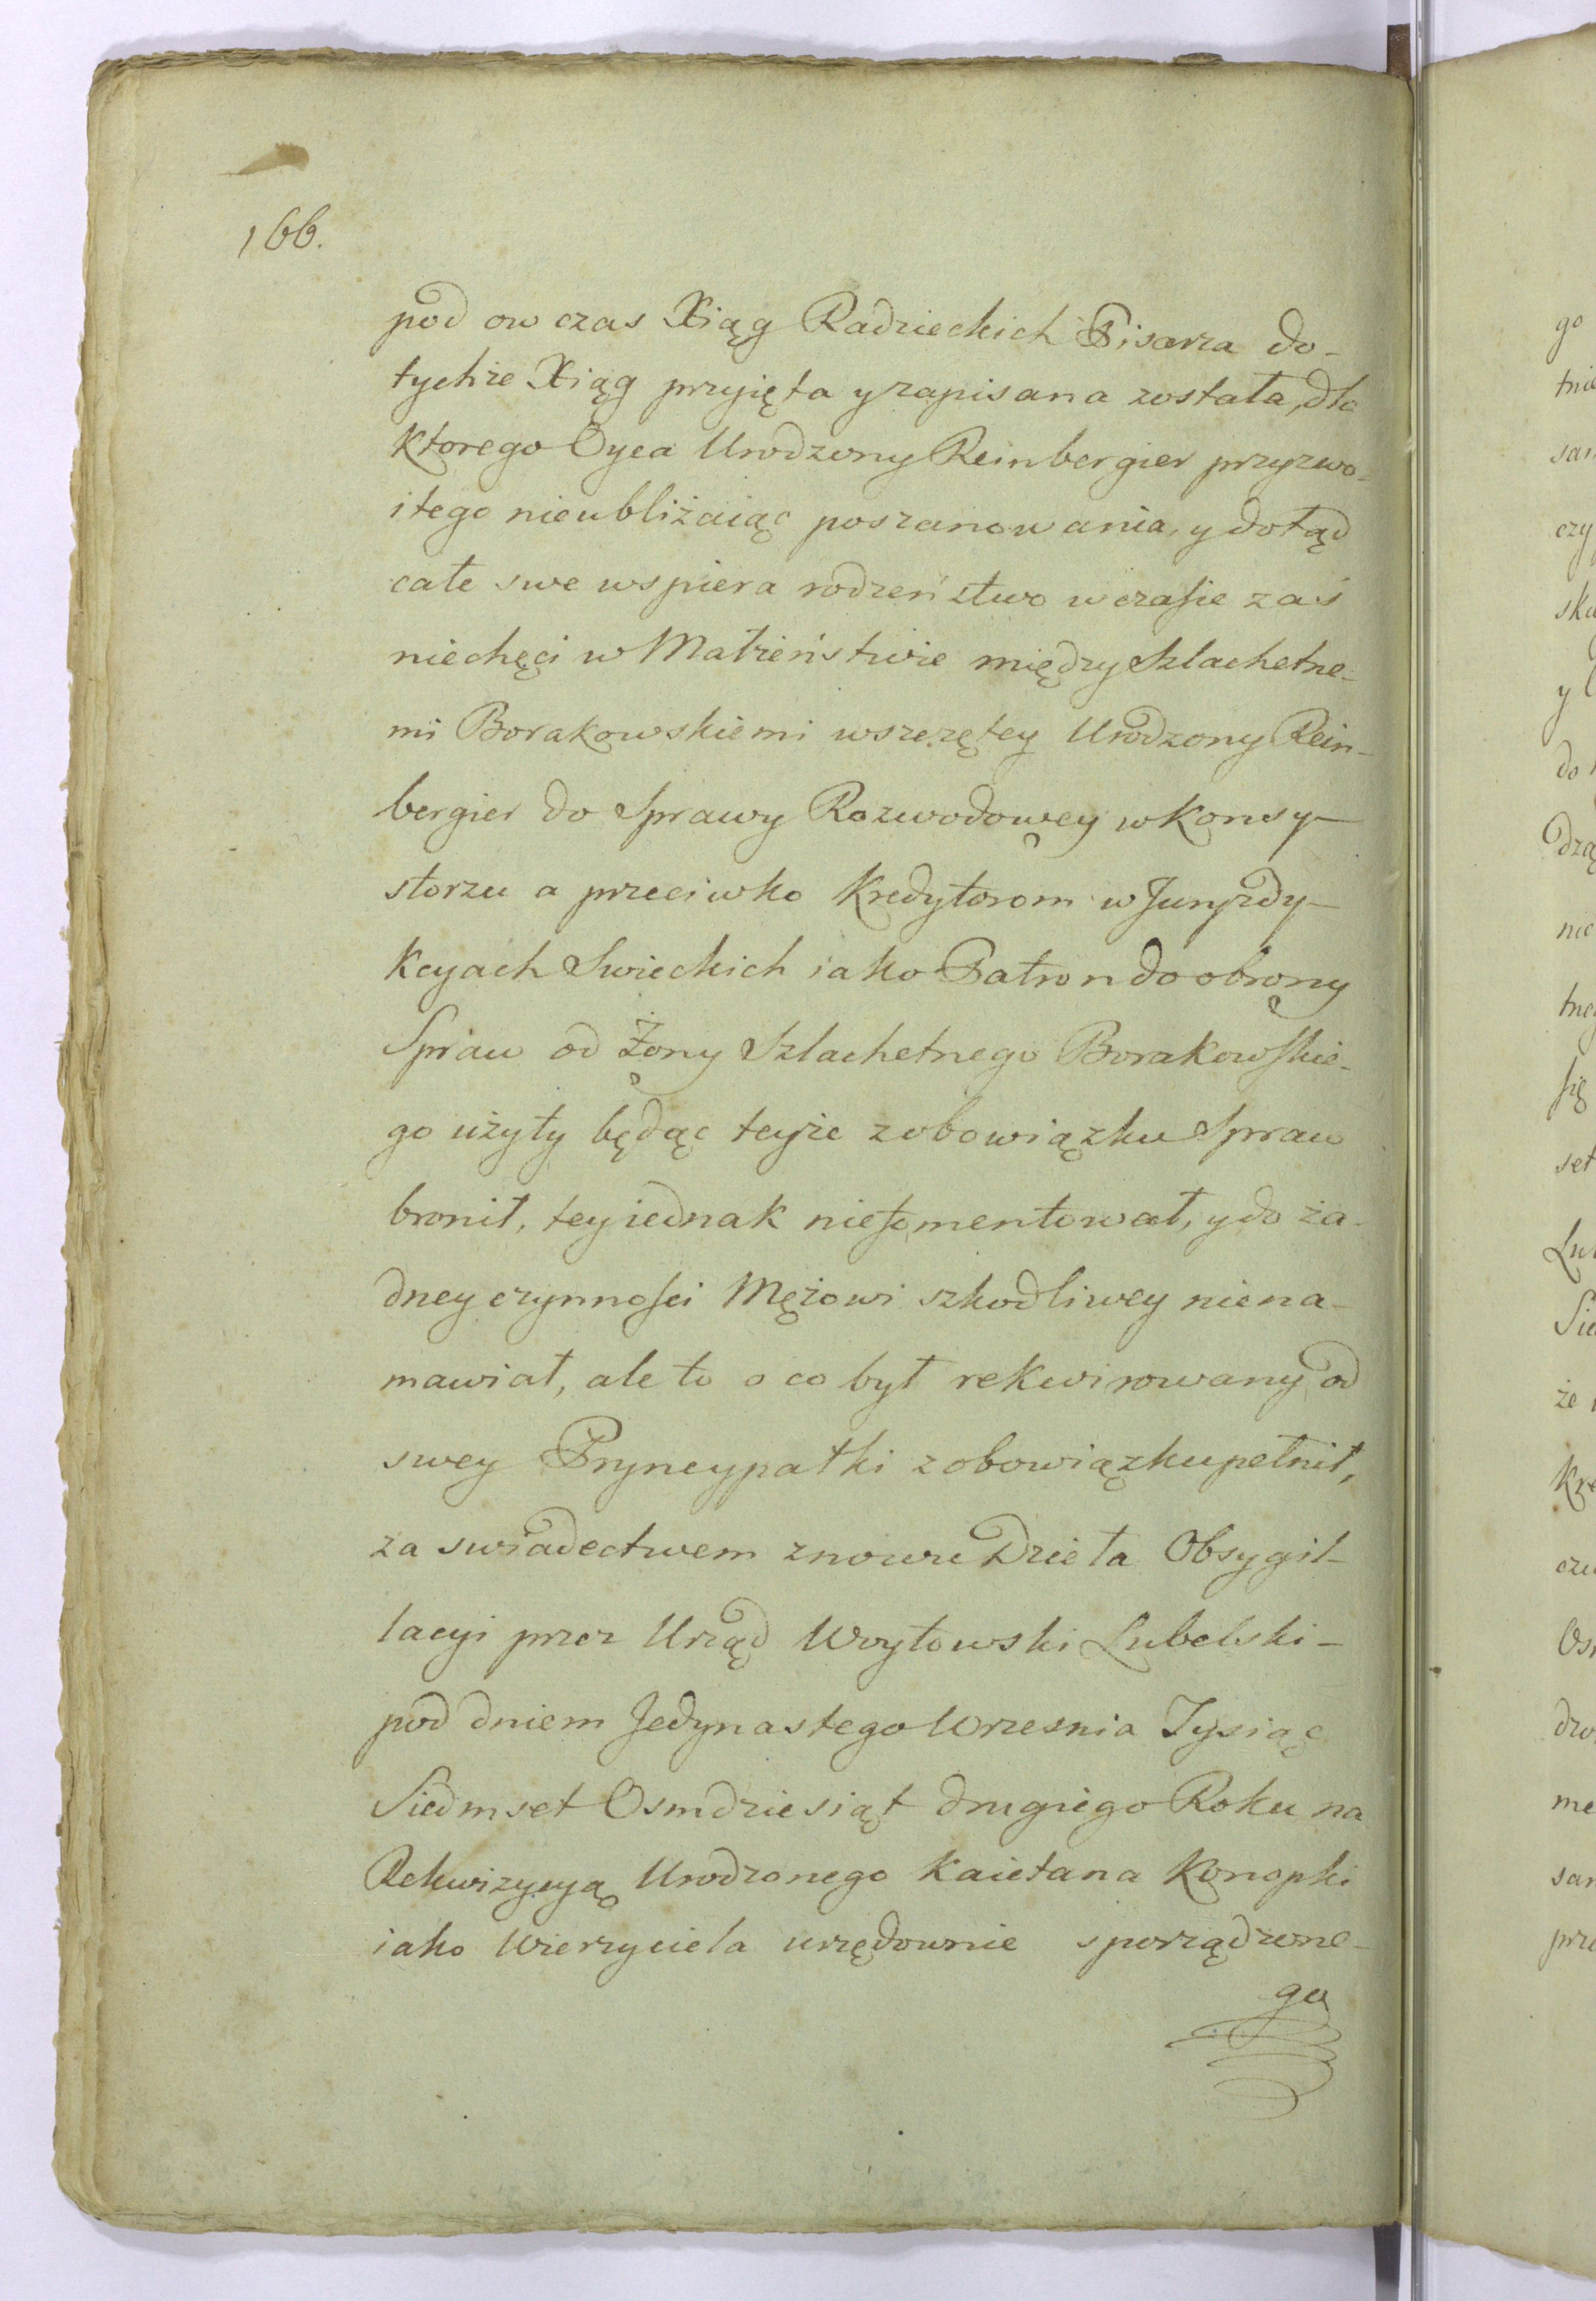 166.
pod ow czas Xiąg Radzieckich Pisarza do-
tychże Xiąg przyięta y zapisana została, dla
ktorego Oyca Urodzony Reinbergier przyzwo-
itego nieubliżaiąc poszanowania, y dotąd
całe swe wspiera rodzeństwo w czasie zaś
niechęci w Małżeństwie między Szlachetne-
mi Borakowskiemi wszczętey Urodzony Rein-
bergier do Sprawy Rozwodowey w Konsy-
storzu a przeciwko Kredytorom w Juryzdy-
kcyach Swieckich iako Patron do obrony
Spraw od Żony Szlachetnego Borakowskie-
go użyty będąc teyże z obowiązku Spraw
bronił, tey iednak niefomentował, y do ża-
dney czynności Mężowi szkodliwey niena-
mawiał, ale to o co był rekwirowany od
swey Pryncypałki z obowiązku pełnił,
za swiadectwem znowu Dzieła Obsygil-
lacyi przez Urząd Woytowski Lubelski-
pod dniem Jedynastego Wrzesnia Tysiąc
Siedmset Osmdziesiąt drugiego Roku na
Rekwizycyą Urodzonego Kaietana Konopki
iako Wierzyciela urzędownie sporządzone-
go
go
tnie
san
czy
ska
y
do
dzą
nie
tne
się
set
Lub
Sie
że
Kre
czu
Os
dzo
me
san
prze